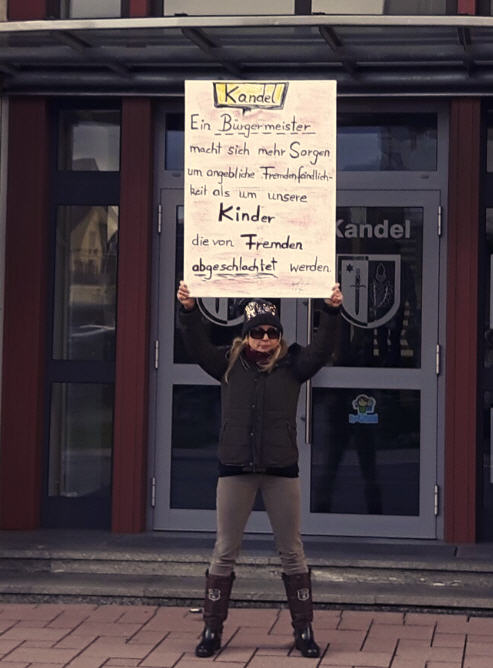 Kandel
Ein Bürgermeister
macht sich mehr Sorgen
um angebliche Fremdenfeindlich-
keit als um unsere
Kinder
die von Fremden
abgeschlachtet werden.
Kandel